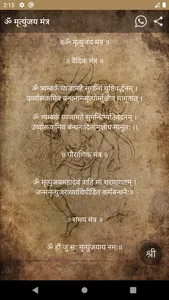 3:15
ॐ मृत्युंजय मंत्र
॥ ॐ मृत्युंजय मंत्र ॥
॥ वैदिक मंत्र ॥
ॐ त्र्यम्बकं यजामहे सुगन्धिं पुष्टिवर्द्धनम् ।
उर्वारुकमिव बन्धनान्मृत्योर्मुक्षीय मामृतात् ।
ॐ त्र्यम्बकं यजामहे सुगन्धिं
उर्वारुकमिव बन्धनादितोमुक्षीय मामुतः ।।
॥ पौराणिक मंत्र ॥
ॐ मृत्युंजयमहादेवं त्राहि मां शरणागतम् ।
जन्ममृत्युजराव्याधिपीडितं कर्मबन्धनैः॥
ॐ हौं जूं सः मृत्युंजयाय नमः॥
श्री